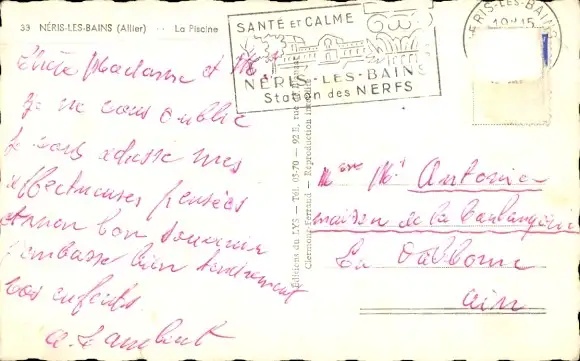 33 NÉRIS-LES-BAINS (Allier) -- La Piscine
SANTÉ ET CALME
NÉRIS-LES-BAINS
Station des NERFS
NÉRIS-LES-BAINS
Chère Madame et Mr
je ne vous oublie
je vous adresse mes
affectueuses pensées
et mon bon souvenir
j'embrasse bien tendrement
vos enfants.
Editions du LYS — Tél. 05-70 — 92 B, rue
Clermont-Ferrand - Reproduction
Mme Mr Antonin
maison de la boulangerie
La Valbonne
Ain